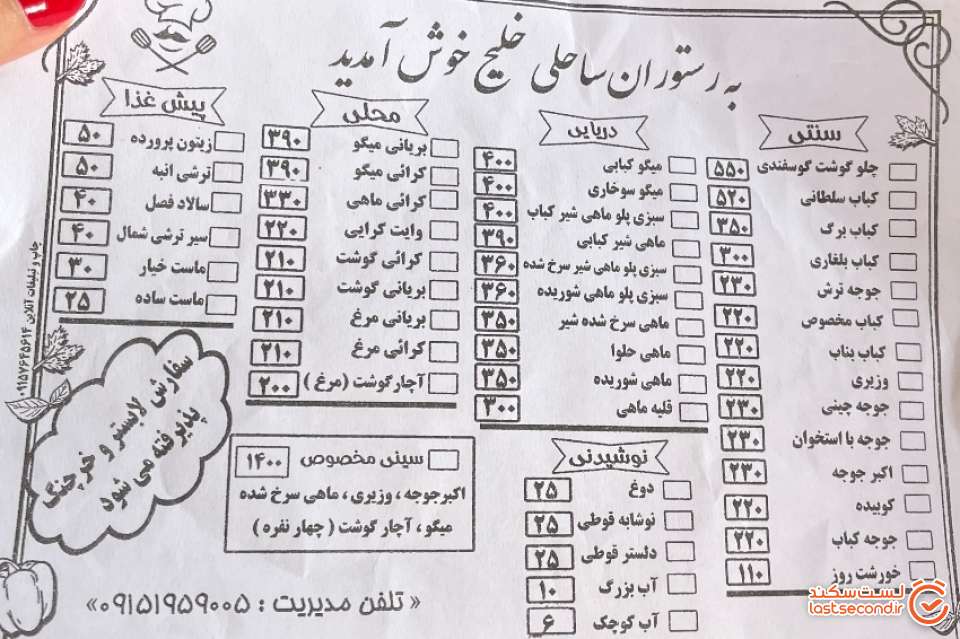 به رستوران ساحلی خلیج خوش آمدید
سنتی
چلو گوشت گوسفندی ۵۵۰
کباب سلطانی ۵۲۰
کباب برگ ۳۵۰
کباب بلغاری ۳۰۰
جوجه ترش ۲۳۰
کباب مخصوص ۲۲۰
کباب بناب ۲۲۰
وزیری ۲۲۰
جوجه چینی ۲۳۰
جوجه با استخوان ۲۳۰
اکبر جوجه ۲۳۰
کوبیده ۲۲۰
جوجه کباب ۲۲۰
خورشت روز ۱۱۰
دریایی
میگو کبابی ۴۰۰
میگو سوخاری ۴۰۰
سبزی پلو ماهی شیر کباب ۴۰۰
ماهی شیر کبابی ۳۹۰
سبزی پلو ماهی شیر سرخ شده ۳۶۰
سبزی پلو ماهی شوریده ۳۶۰
ماهی سرخ شده شیر ۳۵۰
ماهی حلوا ۳۵۰
ماهی شوریده ۳۵۰
قلیه ماهی ۳۰۰
نوشیدنی
دوغ ۲۵
نوشابه قوطی ۲۵
دلستر قوطی ۲۵
آب بزرگ ۱۰
آب کوچک ۶
محلی
بریانی میگو ۳۹۰
کرائی میگو ۳۹۰
کرائی ماهی ۳۳۰
وایت کرایی ۲۲۰
کرائی گوشت ۲۱۰
بریانی گوشت ۲۱۰
بریانی مرغ ۲۱۰
کرائی مرغ ۲۱۰
آچارگوشت ( مرغ ) ۲۰۰
سینی مخصوص ۱۴۰۰
اکبرجوجه ، وزیری ، ماهی سرخ شده
میگو ، آچار گوشت ( چهار نفره )
پیش غذا
زیتون پرورده ۵۰
ترشی انبه ۵۰
سالاد فصل ۴۰
سیر ترشی شمال ۴۰
ماست خیار ۳۰
ماست ساده ۲۵
سفارش لابستر و خرچنگ
پذیرفته می شود
« تلفن مدیریت : ۰۹۱۵۱۹۵۹۰۰۵ »
چاپ و تبلیغات آنلاین ۰۹۱۵۷۶۴۵۶۱۴
لست‌سکند
lastsecond.ir